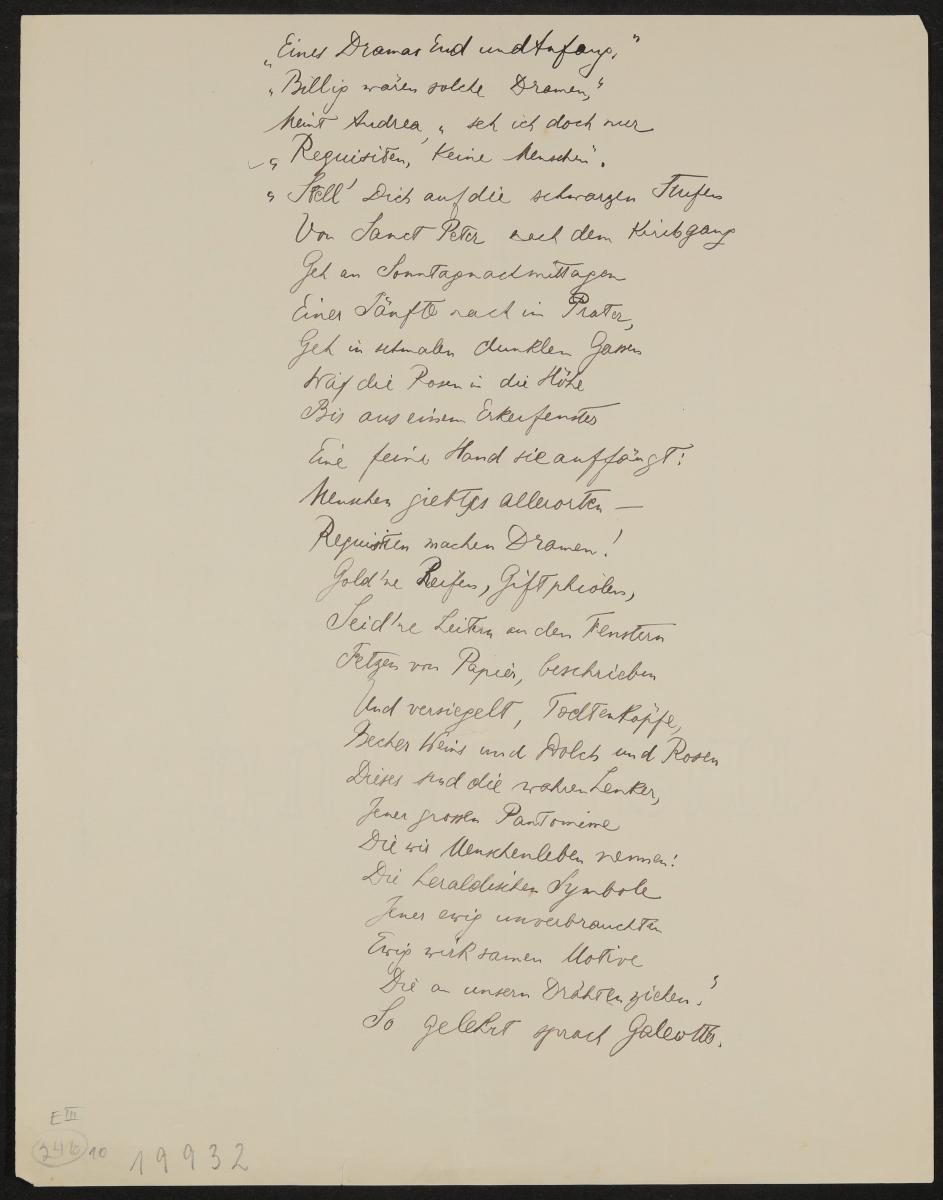 „Eines Dramas End und Anfang."
„Billig wären solche Dramen,"
Meint Andrea, „seh ich doch nur
„Requisiten, keine Menschen".
„Stell' Dich auf die schwarzen Stufen
Von Sanct Peter nach dem Kirchgang
Geh an Sonntagnachmittagen
Einer Sänfte nach im Prater,
Geh in schmalen dunklen Gassen
Wirf die Rosen in die Höhe
Bis aus einem Erkerfenster
Eine feine Hand sie auffängt!
Menschen giebt es allerorten —
Requisiten machen Dramen!
Gold'ne Reifen, Giftphiolen,
Seid'ne Leitern an den Fenstern
Fetzen von Papier, beschrieben
Und versiegelt, Todtenköpfe,
Becher Weins und Dolch und Rosen
Dieses sind die wahren Lenker,
Jener grossen Pantomime
Die wir Menschenleben nennen!
Die heraldischen Symbole
Jener ewig unverbrauchten
Ewig wirksamen Motive
Die an unsern Drähten ziehen."
So gelehrt sprach Galeotto.
E III
246 10
19932